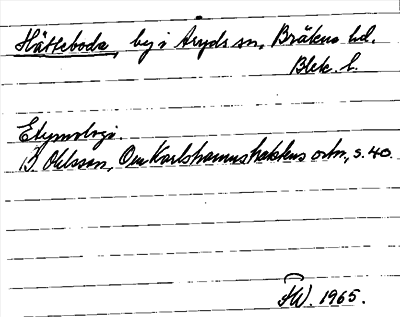 Hätteboda, by i Åryds sn, Bräkne hd.
Blek. l.
Etymologi.
B. Ohlsson, Om Karlshamnstraktens ortn., s. 40.
FW. 1965.